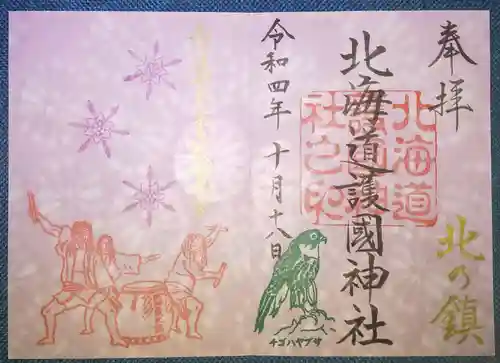 奉拝
北の鎮
北海道護國神社
北海道
令和四年 十月十八日
チゴハヤブサ